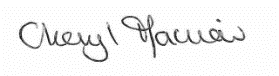 Cheryl Macnair